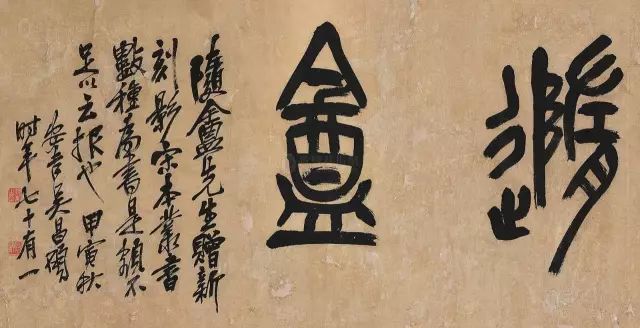 隨盦
隨盦先生贈新
刻影宋本叢書
數種為書是額不
足以云報也 甲寅秋
安吉吳昌碩
時年七十有一